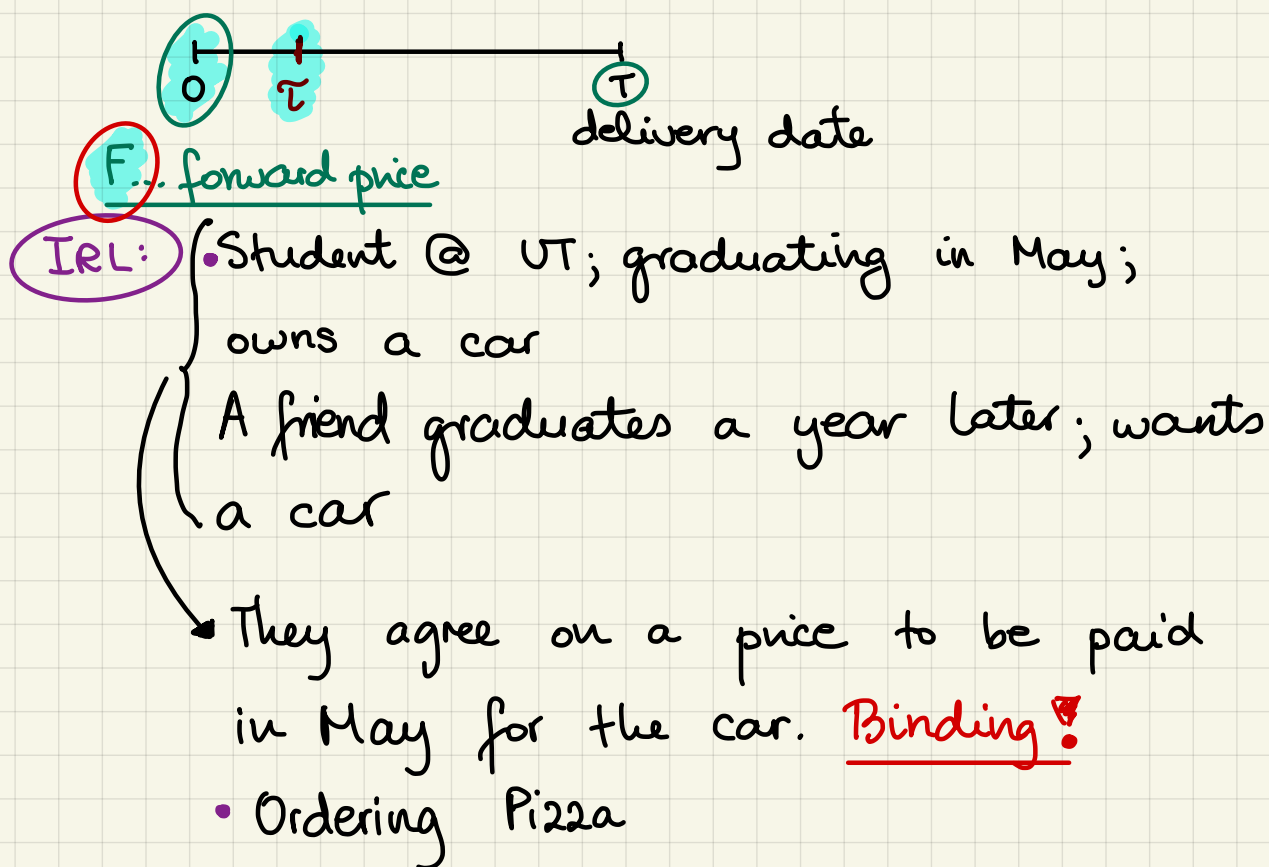 0 τ T
delivery date
F... forward price
IRL: • Student @ UT; graduating in May;
owns a car
A friend graduates a year later; wants
a car
They agree on a price to be paid
in May for the car. Binding!
• Ordering Pizza